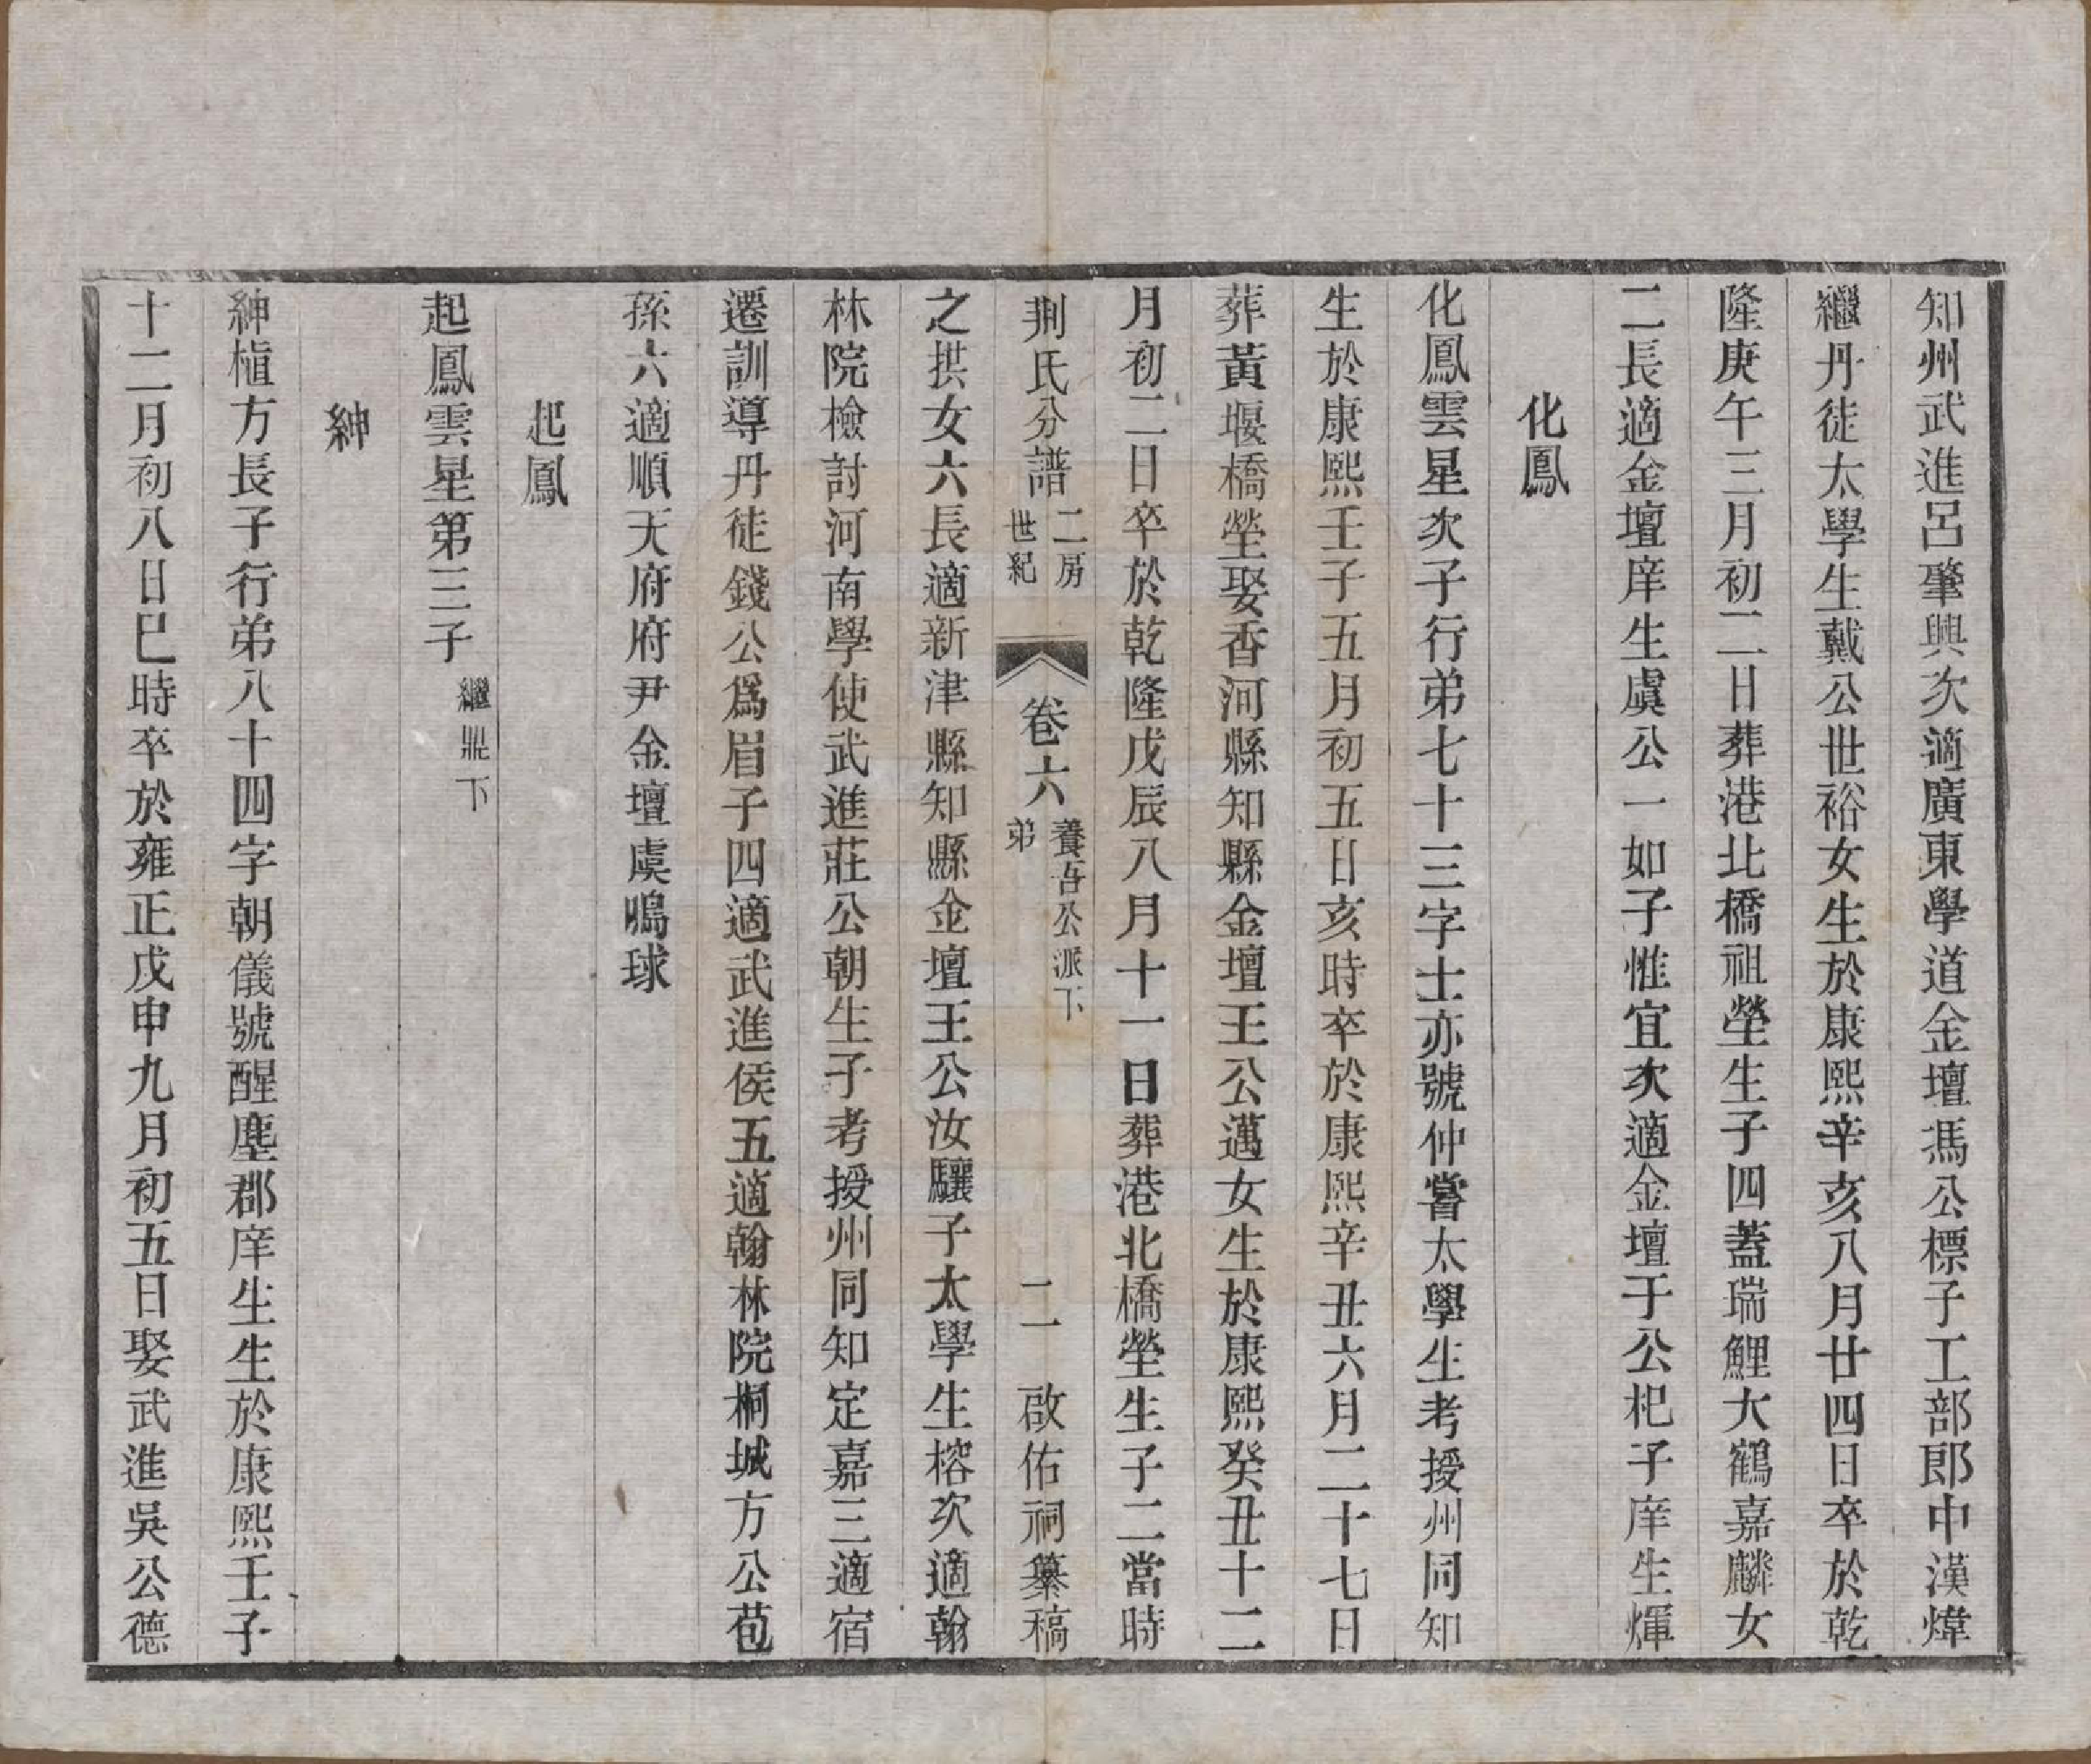 知州武進呂肇興次適廣東學道金壇馮公標子工部郎中漢煒
繼丹徒太學生戴公世裕女生於康熙辛亥八月廿四日卒於乾
隆庚午三月初二日葬港北橋祖塋生子四蓋瑞鯉大鶴嘉麟女
二長適金壇庠生虞公一如子惟宜次適金壇于公杞子庠生煇
化鳳
化鳳雲星次子行弟七十三字士亦號仲嘗太學生考授州同知
生於康熙壬子五月初五日亥時卒於康熙辛丑六月二十七日
葬黃堰橋塋娶香河縣知縣金壇王公邁女生於康熙癸丑十二
月初二日卒於乾隆戊辰八月十一日葬港北橋塋生子二當時
荆氏分譜 二房世紀 卷六 養吾公派下弟 二一 啟佑祠纂稿
之拱女六長適新津縣知縣金壇王公汝驤子太學生榕次適翰
林院檢討河南學使武進莊公朝生子考授州同知定嘉三適宿
遷訓導丹徒錢公爲眉子四適武進侯五適翰林院桐城方公苞
孫六適順天府府尹金壇虞鳴球
起鳳
起鳳雲星第三子 繼鼎下
紳
紳植方長子行弟八十四字朝儀號醒塵郡庠生生於康熙壬子
十二月初八日巳時卒於雍正戊申九月初五日娶武進吳公德